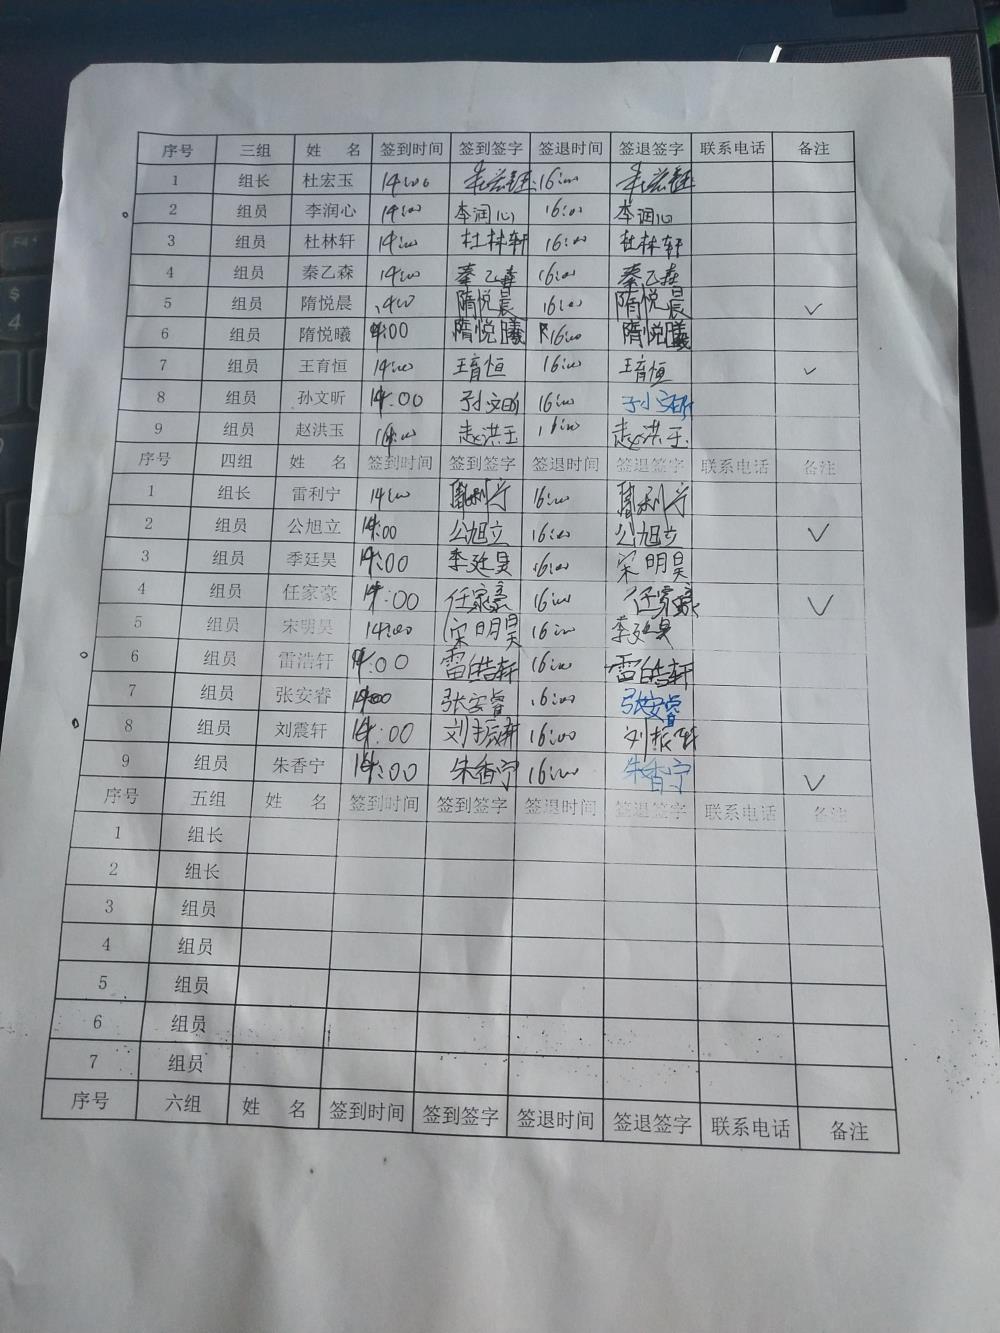 序号 三组 姓 名 签到时间 签到签字 签退时间 签退签字 联系电话 备注
1 组长 杜宏玉 14:00 16:00
2 组员 李润心 14:00 李润心 16:00 李润心
3 组员 杜林轩 14:00 杜林轩 16:00 杜林轩
4 组员 秦乙森 14:00 秦乙森 16:00 秦乙森
5 组员 隋悦晨 1400 隋悦晨 16:00 隋悦晨 ✓
6 组员 隋悦曦 14:00 隋悦曦 16:00 隋悦曦
7 组员 王育恒 14:00 王育恒 16:00 王育恒 ✓
8 组员 孙文昕 14:00 孙文昕 16:00 孙文昕
9 组员 赵洪玉 14:00 赵洪玉 16:00 赵洪玉
序号 四组 姓 名 签到时间 签到签字 签退时间 签退签字 联系电话 备注
1 组长 雷利宁 14:00 利宁 16:00 利宁
2 组员 公旭立 14:00 公旭立 16:00 公旭立 ✓
3 组员 季廷昊 14:00 季廷昊 16:00 宋明昊
4 组员 任家豪 14:00 任家豪 16:00 任家豪 ✓
5 组员 宋明昊 14:00 宋明昊 16:00 季廷昊
6 组员 雷浩轩 14:00 雷皓轩 16:00 雷皓轩
7 组员 张安睿 14:00 张安睿 16:00 张安睿
8 组员 刘震轩 14:00 刘振轩 16:00 刘振轩
9 组员 朱香宁 14:00 朱香宁 16:00 朱香宁 ✓
序号 五组 姓 名 签到时间 签到签字 签退时间 签退签字 联系电话 备注
1 组长
2 组长
3 组员
4 组员
5 组员
6 组员
7 组员
序号 六组 姓 名 签到时间 签到签字 签退时间 签退签字 联系电话 备注